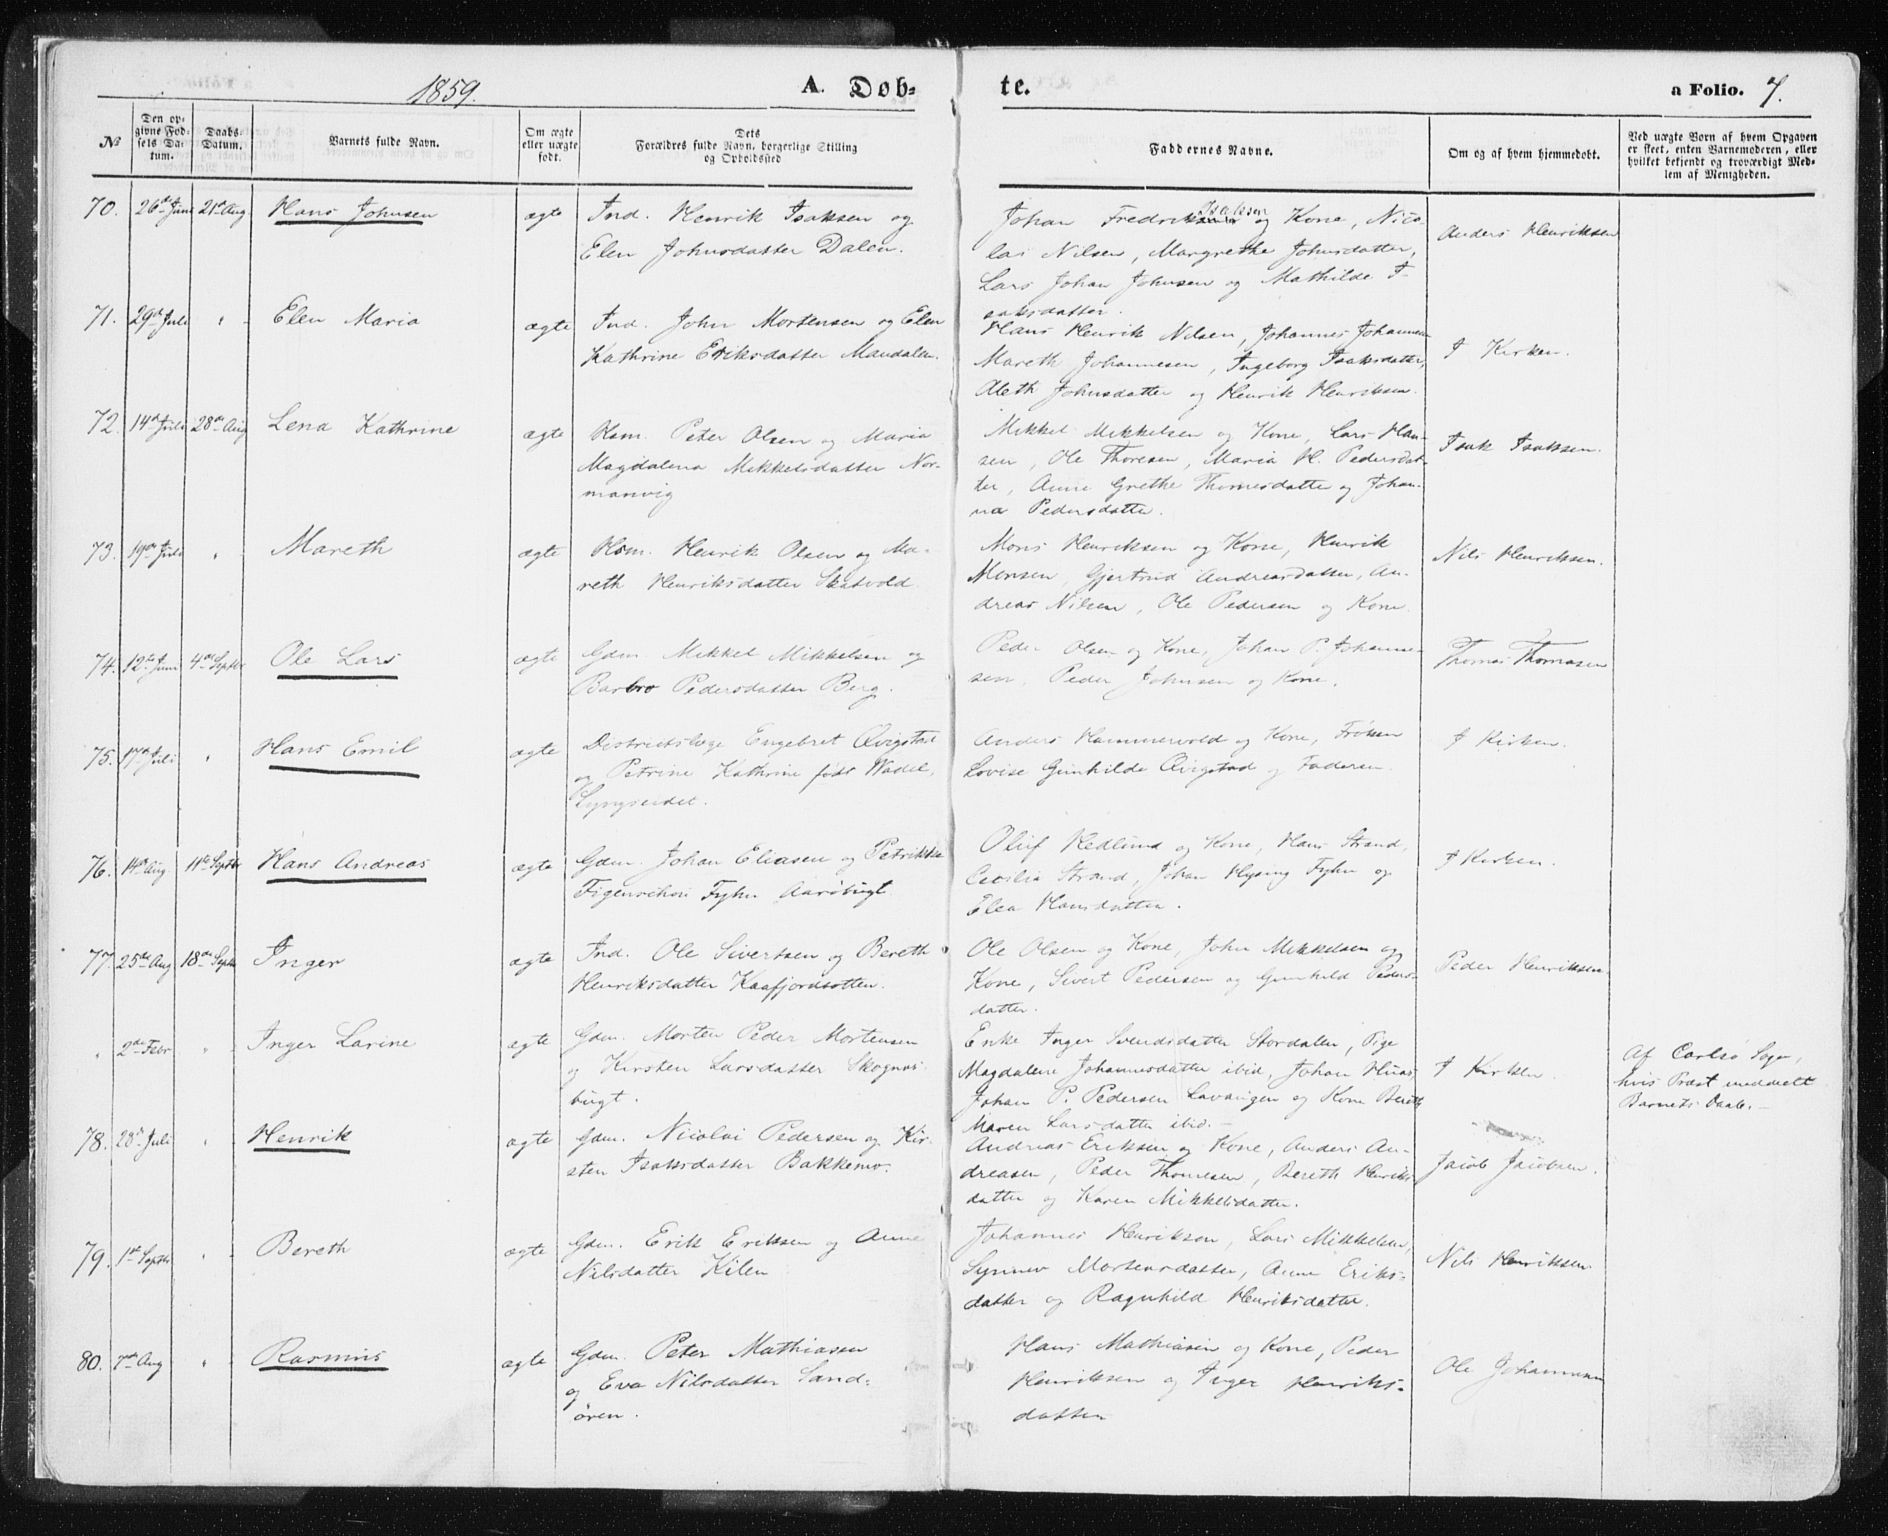 1859.
A. Døb-
te.
a Folio. 7.
No
Den op-
givne Fød-
sels Da-
tum.
Daabs-
Datum.
Barnets fulde Navn.
Om ægte
eller uægte
født.
Dets
Forældres fulde Navn, borgerlige Stilling
og Opholdssted
Faddernes Navne.
Om og af hvem hjemmedøbt.
Ved uægte Børn af hvem Opgaven
er skeet, enten Barnemoderen, eller
hvilket bekjendt og troværdigt Med-
lem af Menigheden.
70. 26de Juni 21de Aug Hans Johnsen ægte Ind. Henrik Isaksen og
Elen Johnsdatter Dalen.
Isaksen
Johan Fredrik og Kone, Nico-
lai Nilsen, Margrethe Johnsdatter,
Lars Johan Johnsen og Mathilde I-
saksdatter.
Anders Henriksen
71. 29de Juli " Elen Maria ægte Ind. John Mortensen og Elen
Kathrine Eriksdatter Mandalen.
Hans Henrik Nilsen, Johannes Johannesen
Mareth Johannesen, Ingeborg Isaksdatter,
Aleth Johnsdatter og Henrik Henriksen.
I Kirken.
72. 14de Juli 28de Aug Lena Kathrine ægte Hsm. Peter Olsen og Maria
Magdalena Mikkelsdatter Nor-
manvig
Mikkel Mikkelsen og Kone, Lars Han-
sen, Ole Thoresen, Maria H. Pedersdat-
ter, Anne Grethe Thomesdatter og Johan-
na Pedersdatter.
Isak Isaksen.
73. 19de Juli " Mareth ægte Hsm. Henrik Olsen og Ma-
reth Henriksdatter Skatvold
Mons Henriksen og Kone, Henrik
Monsen, Gjertrud Andreasdatter, An-
dreas Nilsen, Ole Pedersen og Kone.
Nils Henriksen.
74. 12te Juni 4de Septbr Ole Lars ægte Gdm. Mikkel Mikkelsen og
Barbro Pedersdatter Berg.
Peder Olsen og Kone, Johan P. Johanne-
sen, Peder Johnsen og Kone.
Thomas Thomasen
75. 17de Juli " Hans Emil ægte Districtslæge Engebret Qvigstad
og Petrine Kathrine født Wadel,
Lyngseidet.
Anders Hammervold og Kone, Frøken
Lovise Gunhilde Qvigstad og Faderen
I Kirken.
76. 14de Aug 11te Septbr Hans Andreas ægte Gdm. Johan Eliasen og Petrikke
Figenschou Fyhn Aarøbugt
Oluf Hedlund og Kone, Hans Strand,
Cecilia Strand, Johan Hysing Fyhn og
Elea Hansdatter.
I Kirken.
77. 25de Aug 18de Septbr Inger ægte Ind. Ole Sivertsen og Bereth
Henriksdatter Kaafjordbotten.
Ole Olsen og Kone, John Mikkelsen og
Kone, Sivert Pedersen og Gunhild Peders-
datter.
Peder Henriksen
" 2de Febr " Inger Larine ægte Gdm. Morten Peder Mortensen
og Kirsten Larsdatter Skogns-
bugt.
Enke Inger Svendsdatter Stordalen, Pige
Magdalene Johannesdatter ibid, Johan
Johan P. Pedersen Lavangen og Kone Bereth
Maren Larsdatter ibid.-
I Kirken.
Af Carlsø Sogn,
hvis Præst meddeelt
Barnets Daab. -
78. 28de Juli " Henrik ægte Gdm. Nicolai Pedersen og Kir-
sten Isaksdatter Bakkemo.
Andreas Eriksen og Kone, Anders An-
dreasen, Peder Thomesen, Bereth Henriks-
datter og Karen Mikkelsdatter.
Jacob Jacobsen.
79. 1ste Septbr " Bereth ægte Gdm. Erik Eriksen og Anne
Nilsdatter Kilen
Johannes Henriksen, Lars Mikkelsen,
Synnev Mortensdatter, Anne Eriks-
datter og Ragnhild Henriksdatter.
Nils Henriksen
80. 7de Aug " Rasmus ægte Gdm. Peter Mathiasen
og Eva Nilsdatter Sand-
øren.
Hans Mathiasen og Kone, Peder
Henriksen og Inger Henriks-
datter
Ole Johannesen